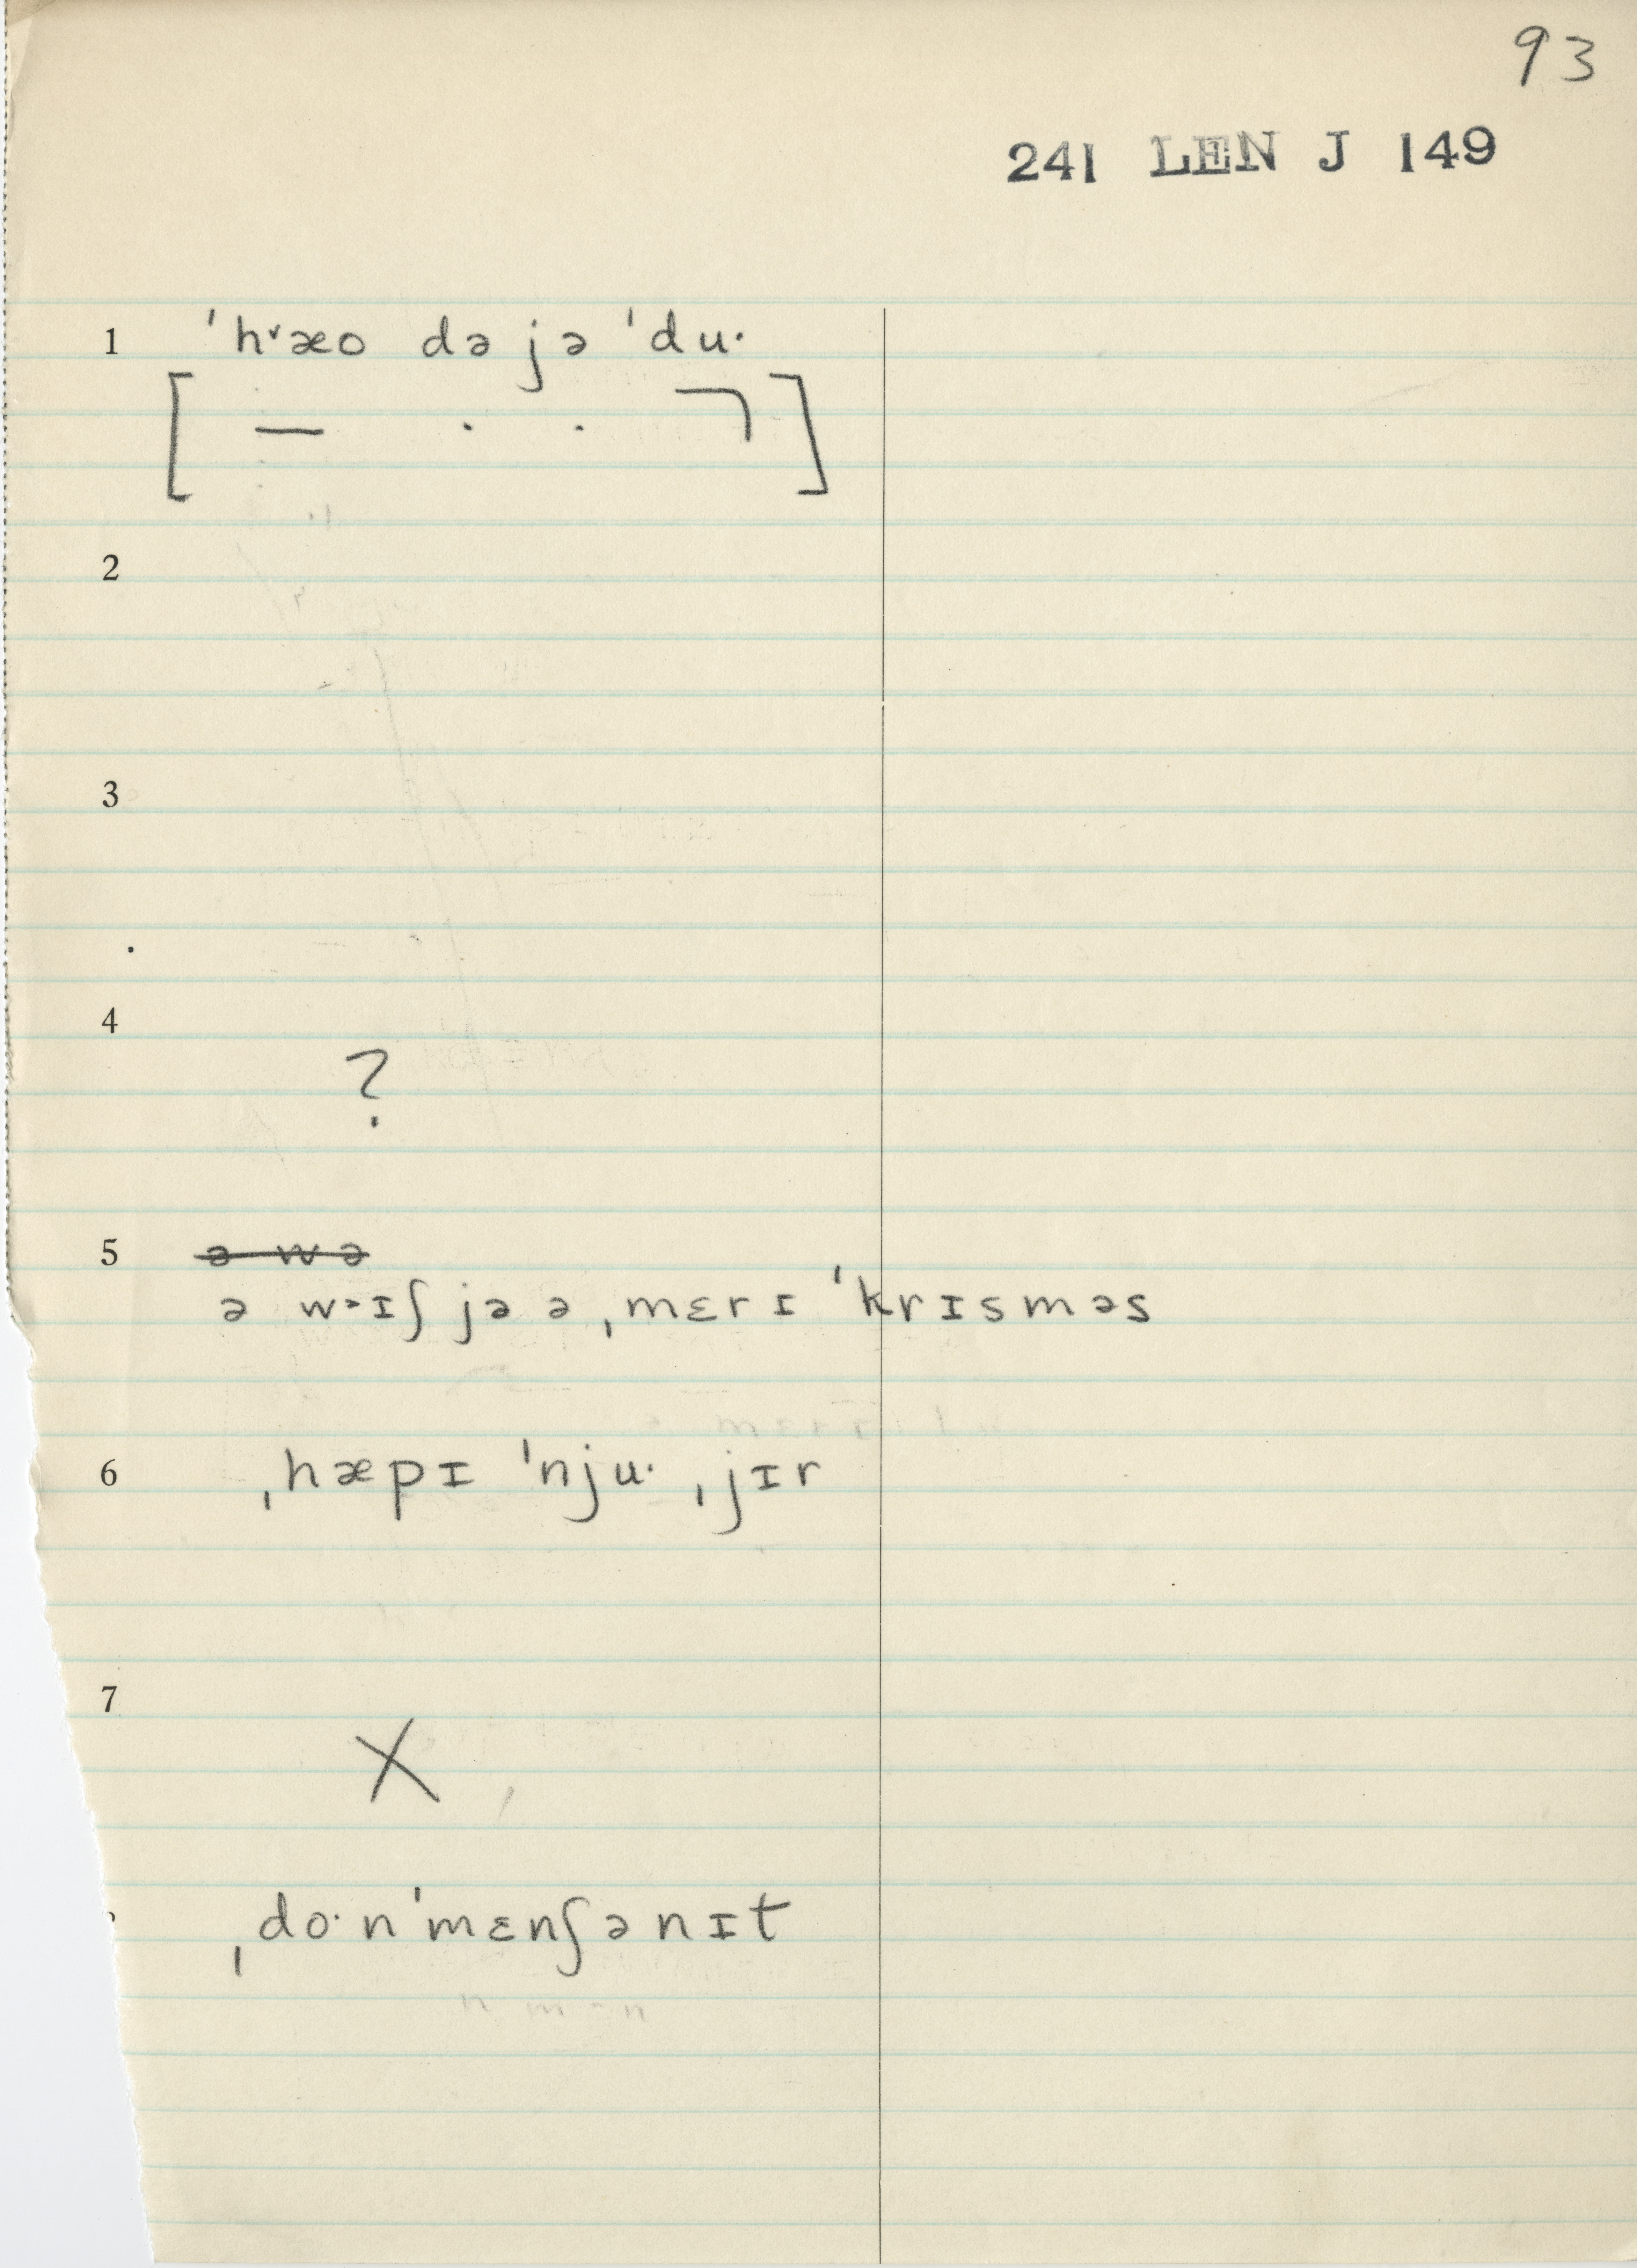 93
241 LEN J 149
1 ˈhᵛæo də jə ˈdu·
[ — · · ⌝ ]
2
3
4
?
5 ə wə
ə wɪʃ jə ə ˌmɛrɪ ˈkrɪsməs
6 ˌhæpɪ ˈnju· ˌjɪr
7
X
ˌdo·nˈmɛnʃənɪt